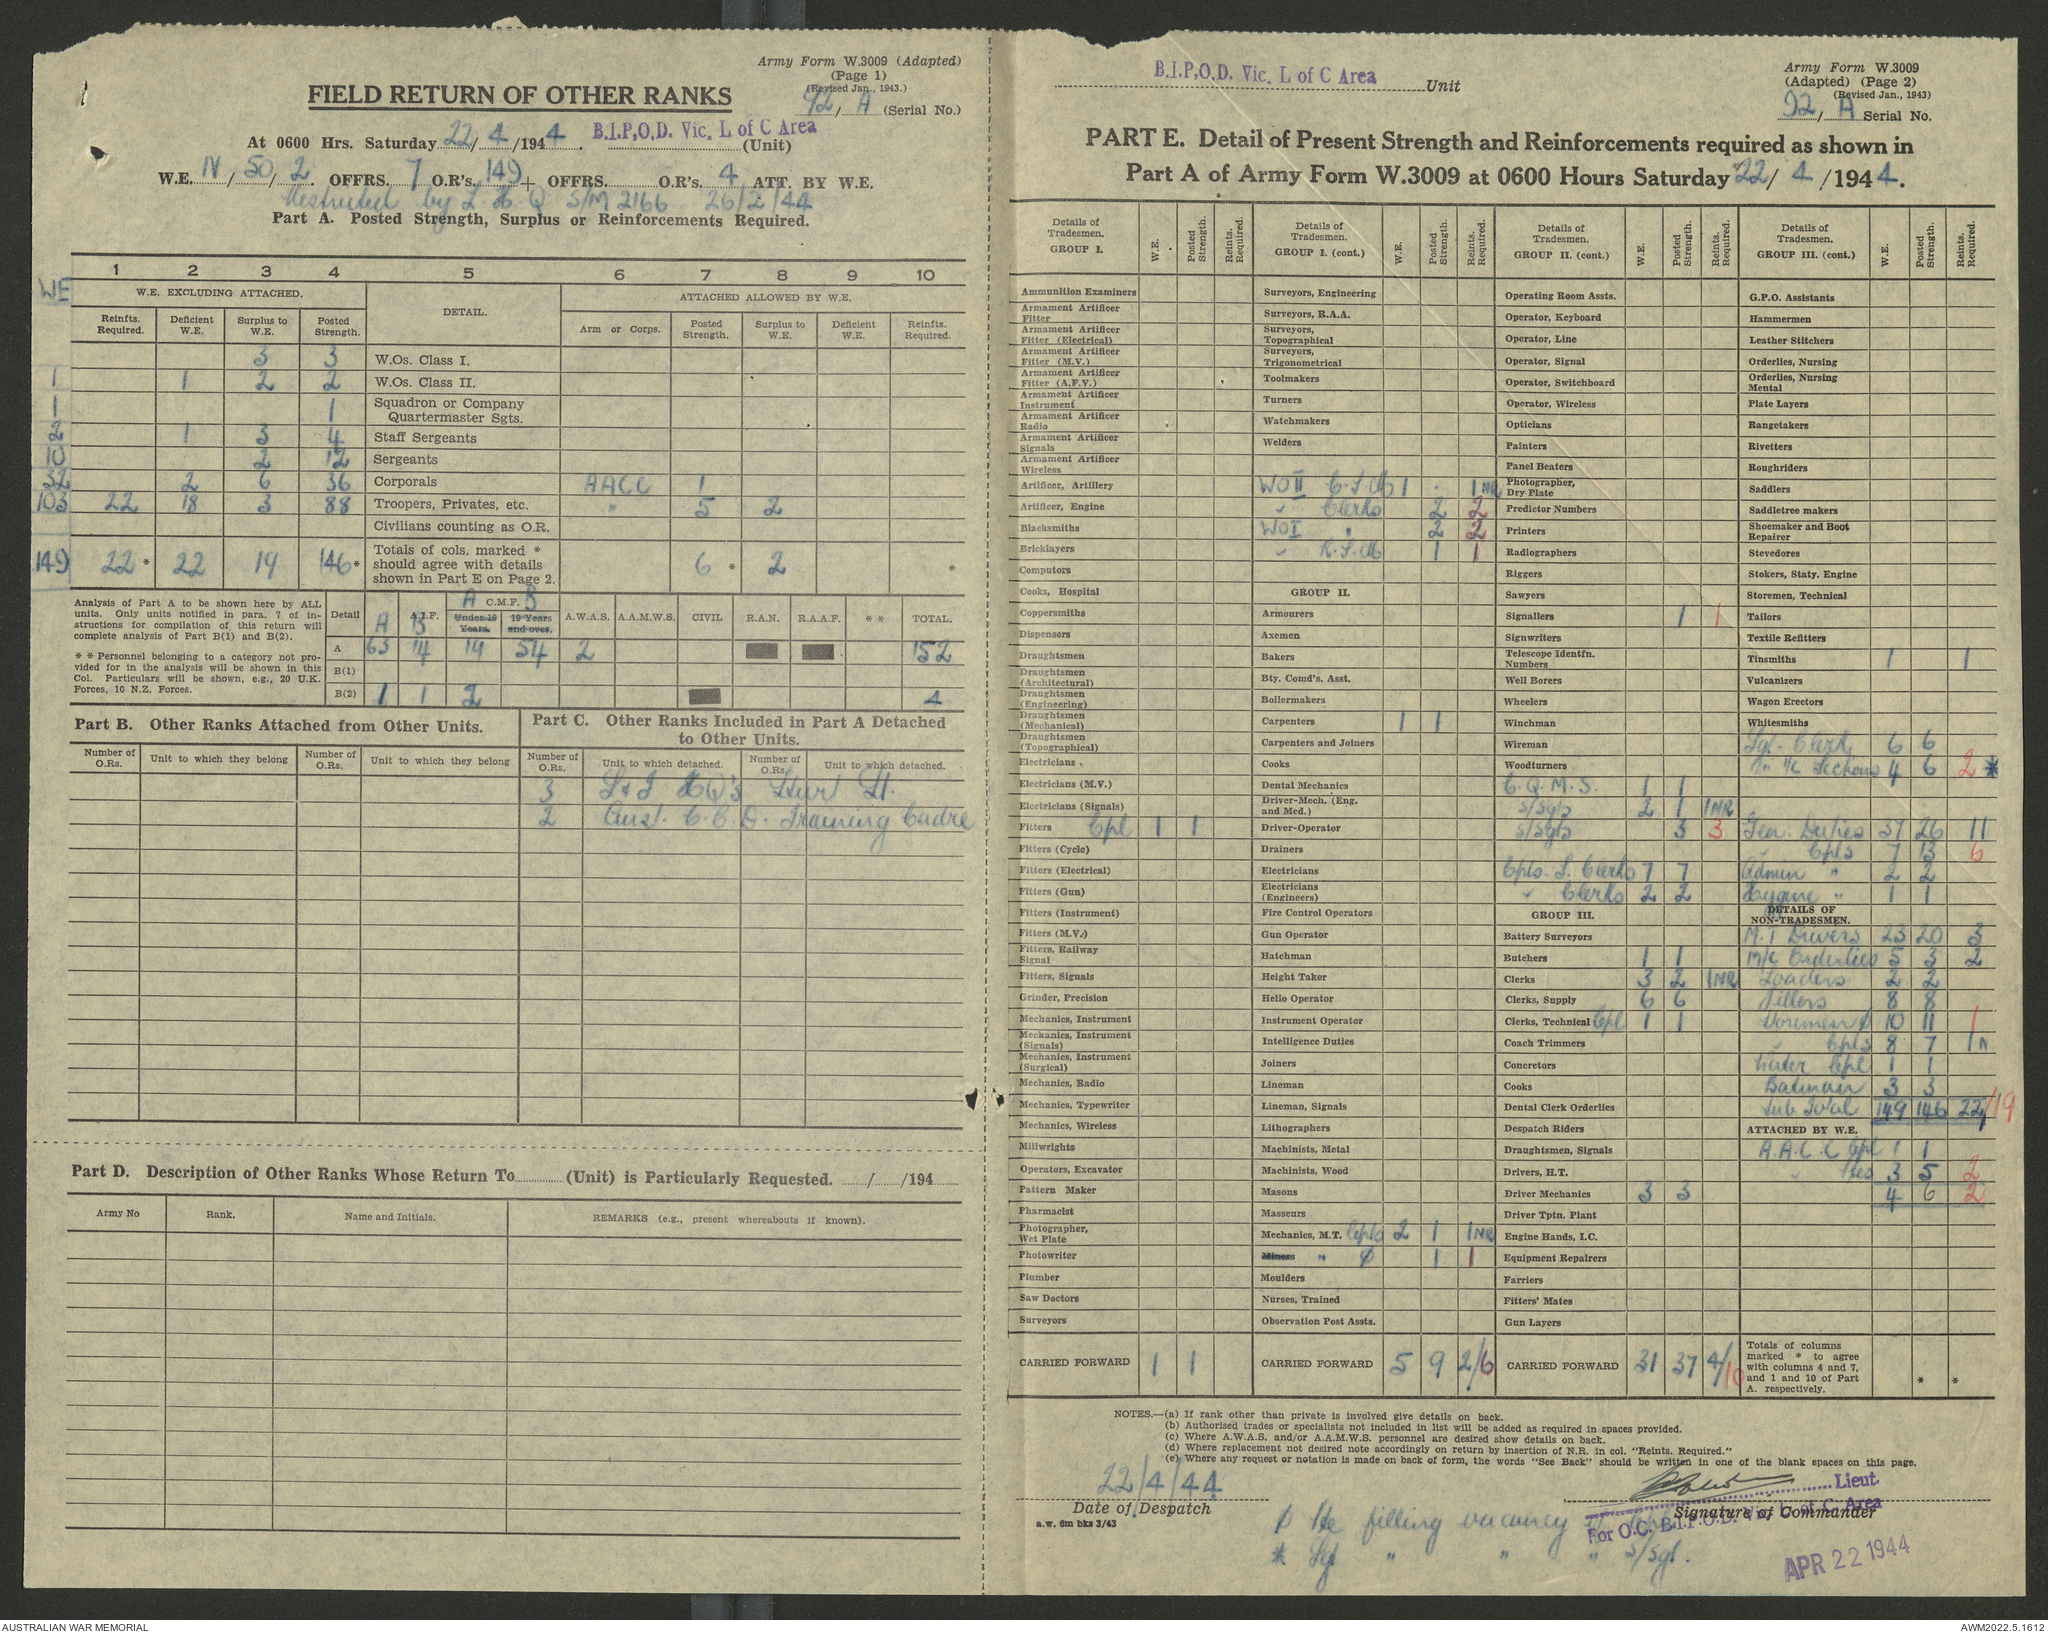 Army Form W.3009 (Adapted)
(Page 1)
(Revised Jan., 1943.)
FIELD RETURN OF OTHER RANKS
92/A (Serial No.)
At 0600 Hrs. Saturday 22/4/1944. B.I.P,O.D. Vic. L of C Area (Unit)
W.E. IV/50/2. OFFRS. 7 O.R's. 149 + OFFRS. O.R's. 4 ATT. BY W.E.
Restricted by L.H.Q S/M 2166 26/2/44
Part A. Posted Strength, Surplus or Reinforcements Required.
1 2 3 4 5 6 7 8 9 10
WE
W.E. EXCLUDING ATTACHED. DETAIL. ATTACHED ALLOWED BY W.E.
Reinfts. Required. Deficient W.E. Surplus to W.E. Posted Strength. Arm or Corps. Posted Strength. Surplus to W.E. Deficient W.E. Reinfts. Required.
3 3 W.Os. Class I.
1 1 2 2 W.Os. Class II.
1 1 Squadron or Company Quartermaster Sgts.
2 1 3 4 Staff Sergeants
10 2 12 Sergeants
32 2 6 36 Corporals AACC 1
103 22 18 3 88 Troopers, Privates, etc. " 5 2
Civilians counting as O.R.
149 22 * 22 19 146 * Totals of cols. marked * should agree with details shown in Part E on Page 2. 6 * 2 *
Analysis of Part A to be shown here by ALL units. Only units notified in para. 7 of instructions for compilation of this return will complete analysis of Part B(1) and B(2).
* * Personnel belonging to a category not provided for in the analysis will be shown in this Col. Particulars will be shown, e.g., 20 U.K. Forces, 10 N.Z. Forces.
Detail A A.I.F. B A C.M.F. B Under 19 Years. 19 Years and over. A.W.A.S. A.A.M.W.S. CIVIL R.A.N. R.A.A.F. * * TOTAL.
A 63 14 19 54 2 152
B(1)
B(2) 1 1 2 4
Part B. Other Ranks Attached from Other Units.
Number of O.Rs. Unit to which they belong Number of O.Rs. Unit to which they belong
Part C. Other Ranks Included in Part A Detached to Other Units.
Number of O.Rs. Unit to which detached. Number of O.Rs. Unit to which detached.
3 HQ's
2 Aust. Training Cadre
Part D. Description of Other Ranks Whose Return To (Unit) is Particularly Requested. / /194
Army No Rank. Name and Initials. REMARKS (e.g., present whereabouts if known).
B.I.P,O.D. Vic. L of C Area Unit
Army Form W.3009
(Adapted) (Page 2)
(Revised Jan., 1943)
92/A Serial No.
PART E. Detail of Present Strength and Reinforcements required as shown in
Part A of Army Form W.3009 at 0600 Hours Saturday 22/4/1944.
Details of Tradesmen. GROUP I. W.E. Posted Strength. Reints. Required.
Ammunition Examiners
Armament Artificer Fitter
Armament Artificer Fitter (Electrical)
Armament Artificer Fitter (M.V.)
Armament Artificer Fitter (A.F.V.)
Armament Artificer Instrument
Armament Artificer Radio
Armament Artificer Signals
Armament Artificer Wireless
Artificer, Artillery
Artificer, Engine
Blacksmiths
Bricklayers
Computors
Cooks, Hospital
Coppersmiths
Dispensers
Draughtsmen
Draughtsmen (Architectural)
Draughtsmen (Engineering)
Draughtsmen (Mechanical)
Draughtsmen (Topographical)
Electricians
Electricians (M.V.)
Electricians (Signals)
Fitters Cpl 1 1
Fitters (Cycle)
Fitters (Electrical)
Fitters (Gun)
Fitters (Instrument)
Fitters (M.V.)
Fitters, Railway Signal
Fitters, Signals
Grinder, Precision
Mechanics, Instrument
Mechanics, Instrument (Signals)
Mechanics, Instrument (Surgical)
Mechanics, Radio
Mechanics, Typewriter
Mechanics, Wireless
Millwrights
Operators, Excavator
Pattern Maker
Pharmacist
Photographer, Wet Plate
Photowriter
Plumber
Saw Doctors
Surveyors
CARRIED FORWARD 1 1
Details of Tradesmen. GROUP I. (cont.) W.E. Posted Strength. Reints. Required.
Surveyors, Engineering
Surveyors, R.A.A.
Surveyors, Topographical
Surveyors, Trigonometrical
Toolmakers
Turners
Watchmakers
Welders
WO II C.S.M 1 . 1 NR
" Clerks 2 2
WO I " 2 2
" R.S.M 1 1
GROUP II.
Armourers
Axemen
Bakers
Bty. Comd's. Asst.
Boilermakers
Carpenters 1 1
Carpenters and Joiners
Cooks
Dental Mechanics
Driver-Mech. (Eng. and Med.)
Driver-Operator
Drainers
Electricians
Electricians (Engineers)
Fire Control Operators
Gun Operator
Hatchman
Height Taker
Helio Operator
Instrument Operator
Intelligence Duties
Joiners
Lineman
Lineman, Signals
Lithographers
Machinists, Metal
Machinists, Wood
Masons
Masseurs
Mechanics, M.T. Cpls 2 1 1 NR
Miners " 1 1
Moulders
Nurses, Trained
Observation Post Assts.
CARRIED FORWARD 5 9 2/6
Details of Tradesmen. GROUP II. (cont.) W.E. Posted Strength. Reints. Required.
Operating Room Assts.
Operator, Keyboard
Operator, Line
Operator, Signal
Operator, Switchboard
Operator, Wireless
Opticians
Painters
Panel Beaters
Photographer, Dry Plate
Predictor Numbers
Printers
Radiographers
Riggers
Sawyers
Signallers 1 1
Signwriters
Telescope Identfn. Numbers
Well Borers
Wheelers
Winchman
Wireman
Woodturners
C.Q.M.S. 1 1
S/Sgts 2 1 1 NR
S/Sgts 3 3
Cpls. S. Clerks 7 7
" Clerks 2 2
GROUP III.
Battery Surveyors
Butchers 1 1
Clerks 3 2 1 NR
Clerks, Supply 6 6
Clerks, Technical Cpl 1 1
Coach Trimmers
Concretors
Cooks
Dental Clerk Orderlies
Despatch Riders
Draughtsmen, Signals
Drivers, H.T.
Driver Mechanics 3 3
Driver Tptn. Plant
Engine Hands, I.C.
Equipment Repairers
Farriers
Fitters' Mates
Gun Layers
CARRIED FORWARD 31 37 4/10
Details of Tradesmen. GROUP III. (cont.) W.E. Posted Strength. Reints. Required.
G.P.O. Assistants
Hammermen
Leather Stitchers
Orderlies, Nursing
Orderlies, Nursing Mental
Plate Layers
Rangetakers
Rivetters
Roughriders
Saddlers
Saddletree makers
Shoemaker and Boot Repairer
Stevedores
Stokers, Staty. Engine
Storemen, Technical
Tailors
Textile Refitters
Tinsmiths 1 1
Vulcanizers
Wagon Erectors
Whitesmiths
Sgt. Clerk 6 6
" i/c Sections 4 6 2 *
Gen. Duties 37 26 11
" Cpls 7 13 6
Admin " 2 2
Hygiene " 1 1
DETAILS OF NON-TRADESMEN.
M.T Drivers 23 20 3
M/C Orderlies 5 3 2
Loaders 2 2
Fillers 8 8
Storemen 10 11 1
" Cpls 8 7 1
Water Cpl 1 1
Batman 3 3
Sub Total 149 146 22/19
ATTACHED BY W.E.
A.A.C.C Cpl 1 1
" Ptes 3 5 2
4 6 2
Totals of columns marked * to agree with columns 4 and 7, and 1 and 10 of Part A. respectively. * *
NOTES.—(a) If rank other than private is involved give details on back.
(b) Authorised trades or specialists not included in list will be added as required in spaces provided.
(c) Where A.W.A.S. and/or A.A.M.W.S. personnel are desired show details on back.
(d) Where replacement not desired note accordingly on return by insertion of N.R. in col. "Reints. Required."
(e) Where any request or notation is made on back of form, the words "See Back" should be written in one of the blank spaces on this page.
22/4/44
Date of Despatch
a.w. 6m bks 3/43
Lieut
Signature of Commander
For O.C. B.I.P.O.D. Vic. L of C. Area
Pte filling vacancy
* Sgt " " " S/Sgt.
APR 22 1944
AUSTRALIAN WAR MEMORIAL
AWM2022.5.1612